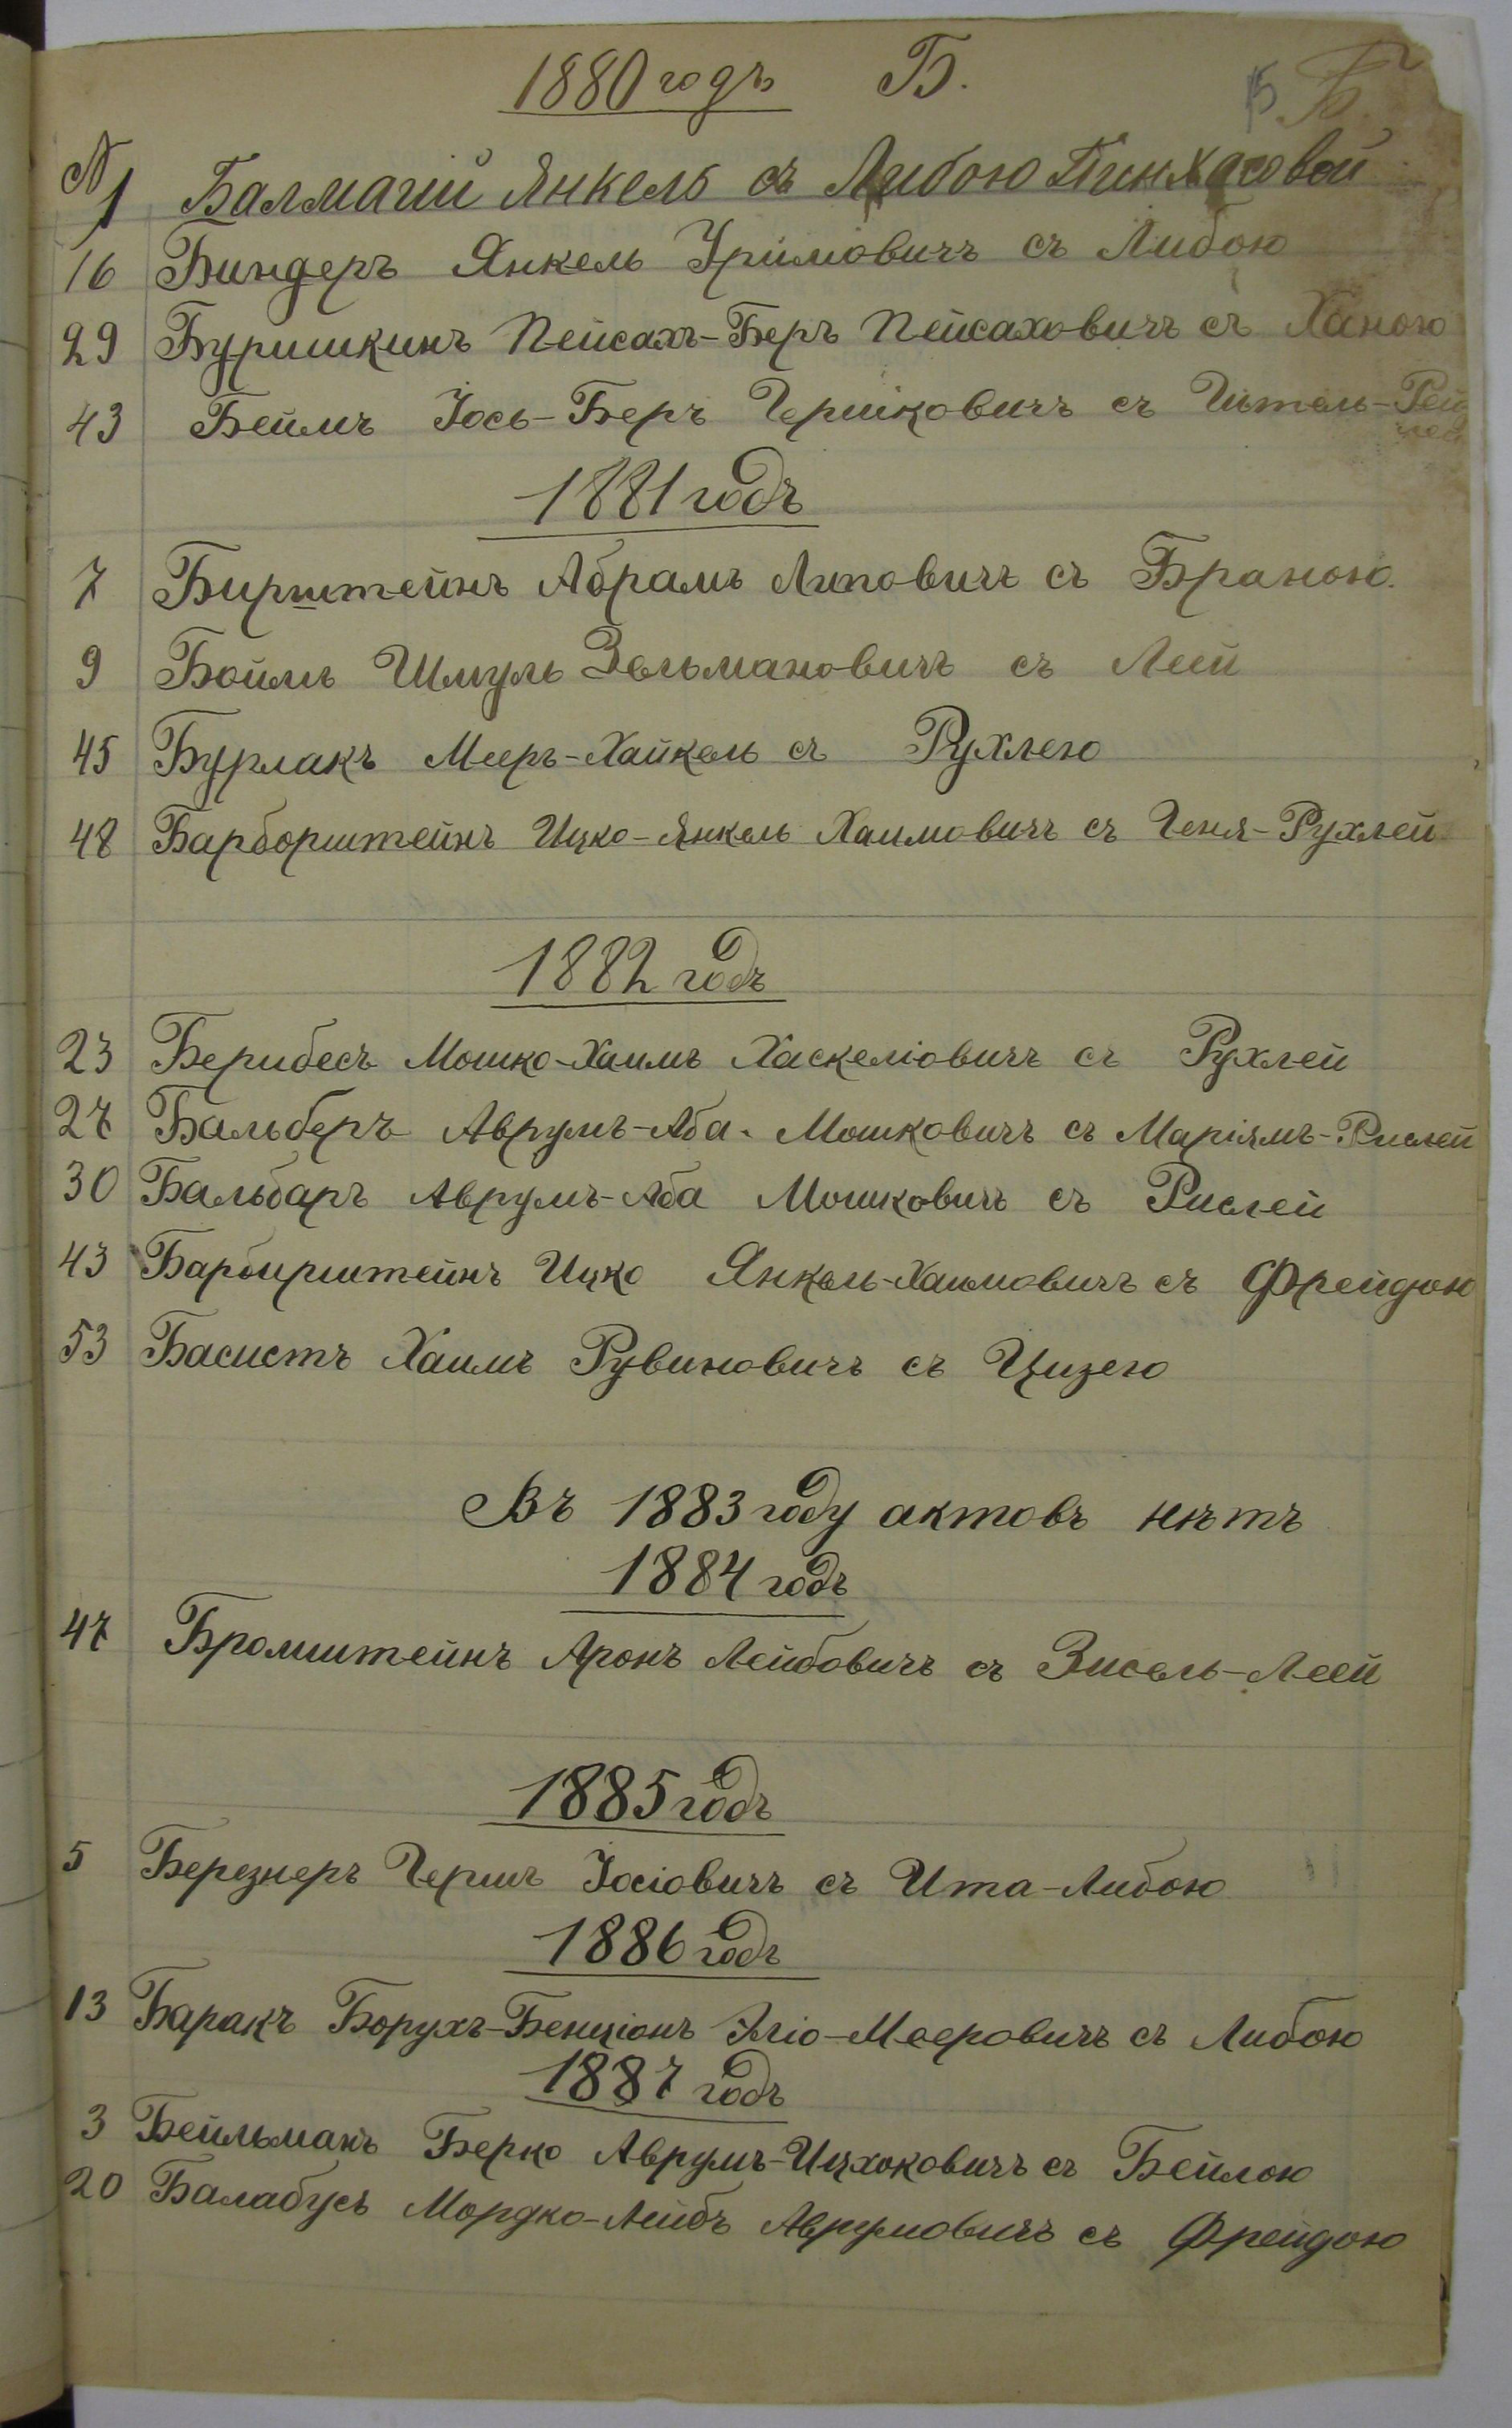 1880 годъ Б.
Б Б.
№ 1 Балмагiй Янкель съ Либою Пинхасовой
16 Биндеръ Янкель Уримовичъ съ Либою
29 Буришкинъ Пейсахъ-Беръ Пейсаховичъ съ Ханою
43 Беймъ Iось-Беръ Гершковичъ съ Гитель-Рей
1881 годъ
7 Бирштейнъ Абрамъ Липовичъ съ Браною.
9 Боймъ Шмуль Зельмановичъ съ Леей
45 Бурлакъ Мееръ-Хайкель съ Рухлею
48 Барборштейнъ Ицко-Янкель Хаимовичъ съ Геня-Рухлей
1882 годъ
23 Берибесъ Мошко-Хаимъ Хаскелiовичъ съ Рухлей
27 Бальберъ Аврумъ-Аба. Мошковичъ съ Марiямъ-Рислей
30 Бальбаръ Аврумъ-Аба Мошковичъ съ Рислей
43 Барбирштейнъ Ицко Янкель-Хаимовичъ съ Фрейдою
53 Басистъ Хаимъ Рувиновичъ съ Цизею
Въ 1883 году актовъ нѣтъ
1884 годъ
47 Бромштейнъ Аронъ Лейбовичъ съ Зисель-Леей
1885 годъ
5 Березнеръ Гершъ Iосiовичъ съ Ита-Либою
1886 годъ
13 Баракъ Борухъ-Бенцiонъ Элiо-Мееровичъ съ Либою
1887 годъ
3 Бейльманъ Берко Аврумъ-Ицхоковичъ съ Бейлою
20 Балабусъ Мордко-Лейбъ Аврумовичъ съ Фрейдою